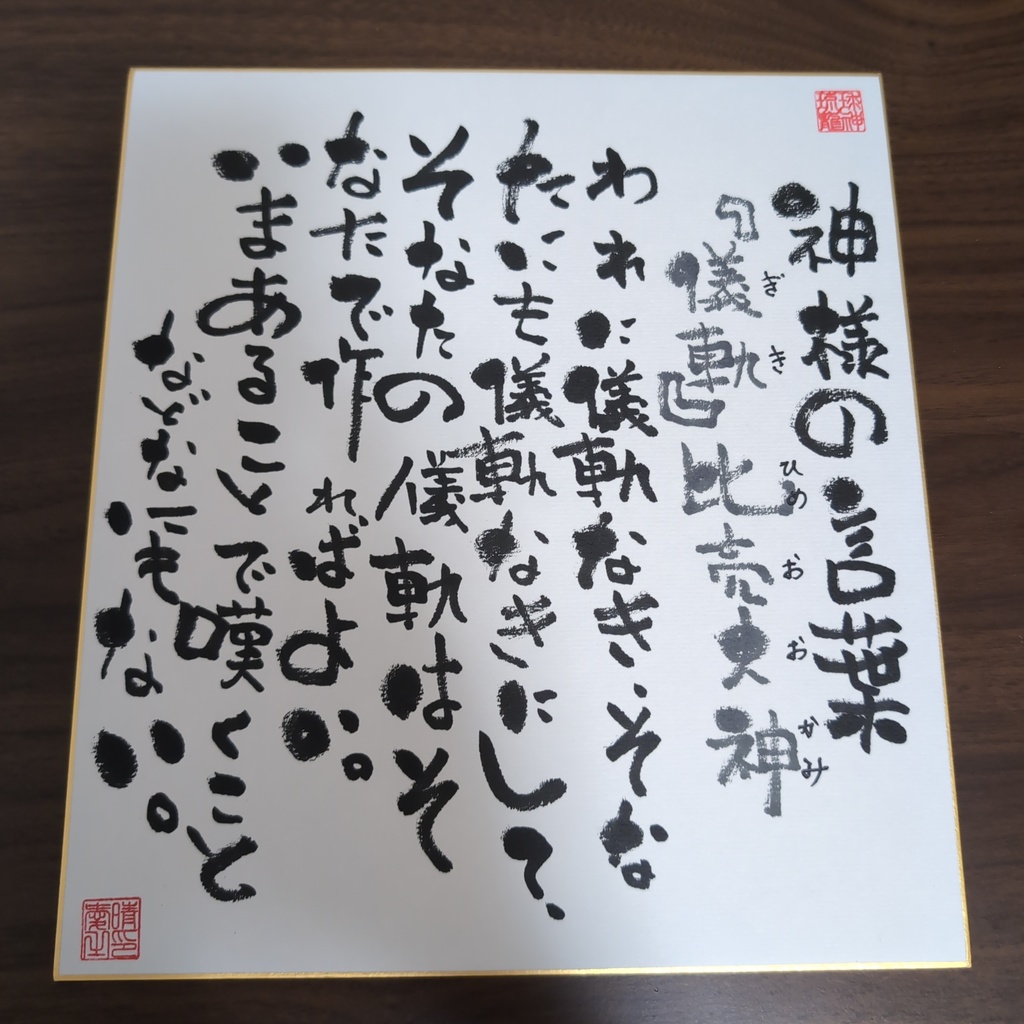 神様の言葉
『儀軌』比売大神
ぎき ひめおおかみ
われに儀軌なき、そな
たにも儀軌なきにして、
そなたの儀軌はそ
なたで作ればよい。
いまあることで嘆くこと
などなにもない。